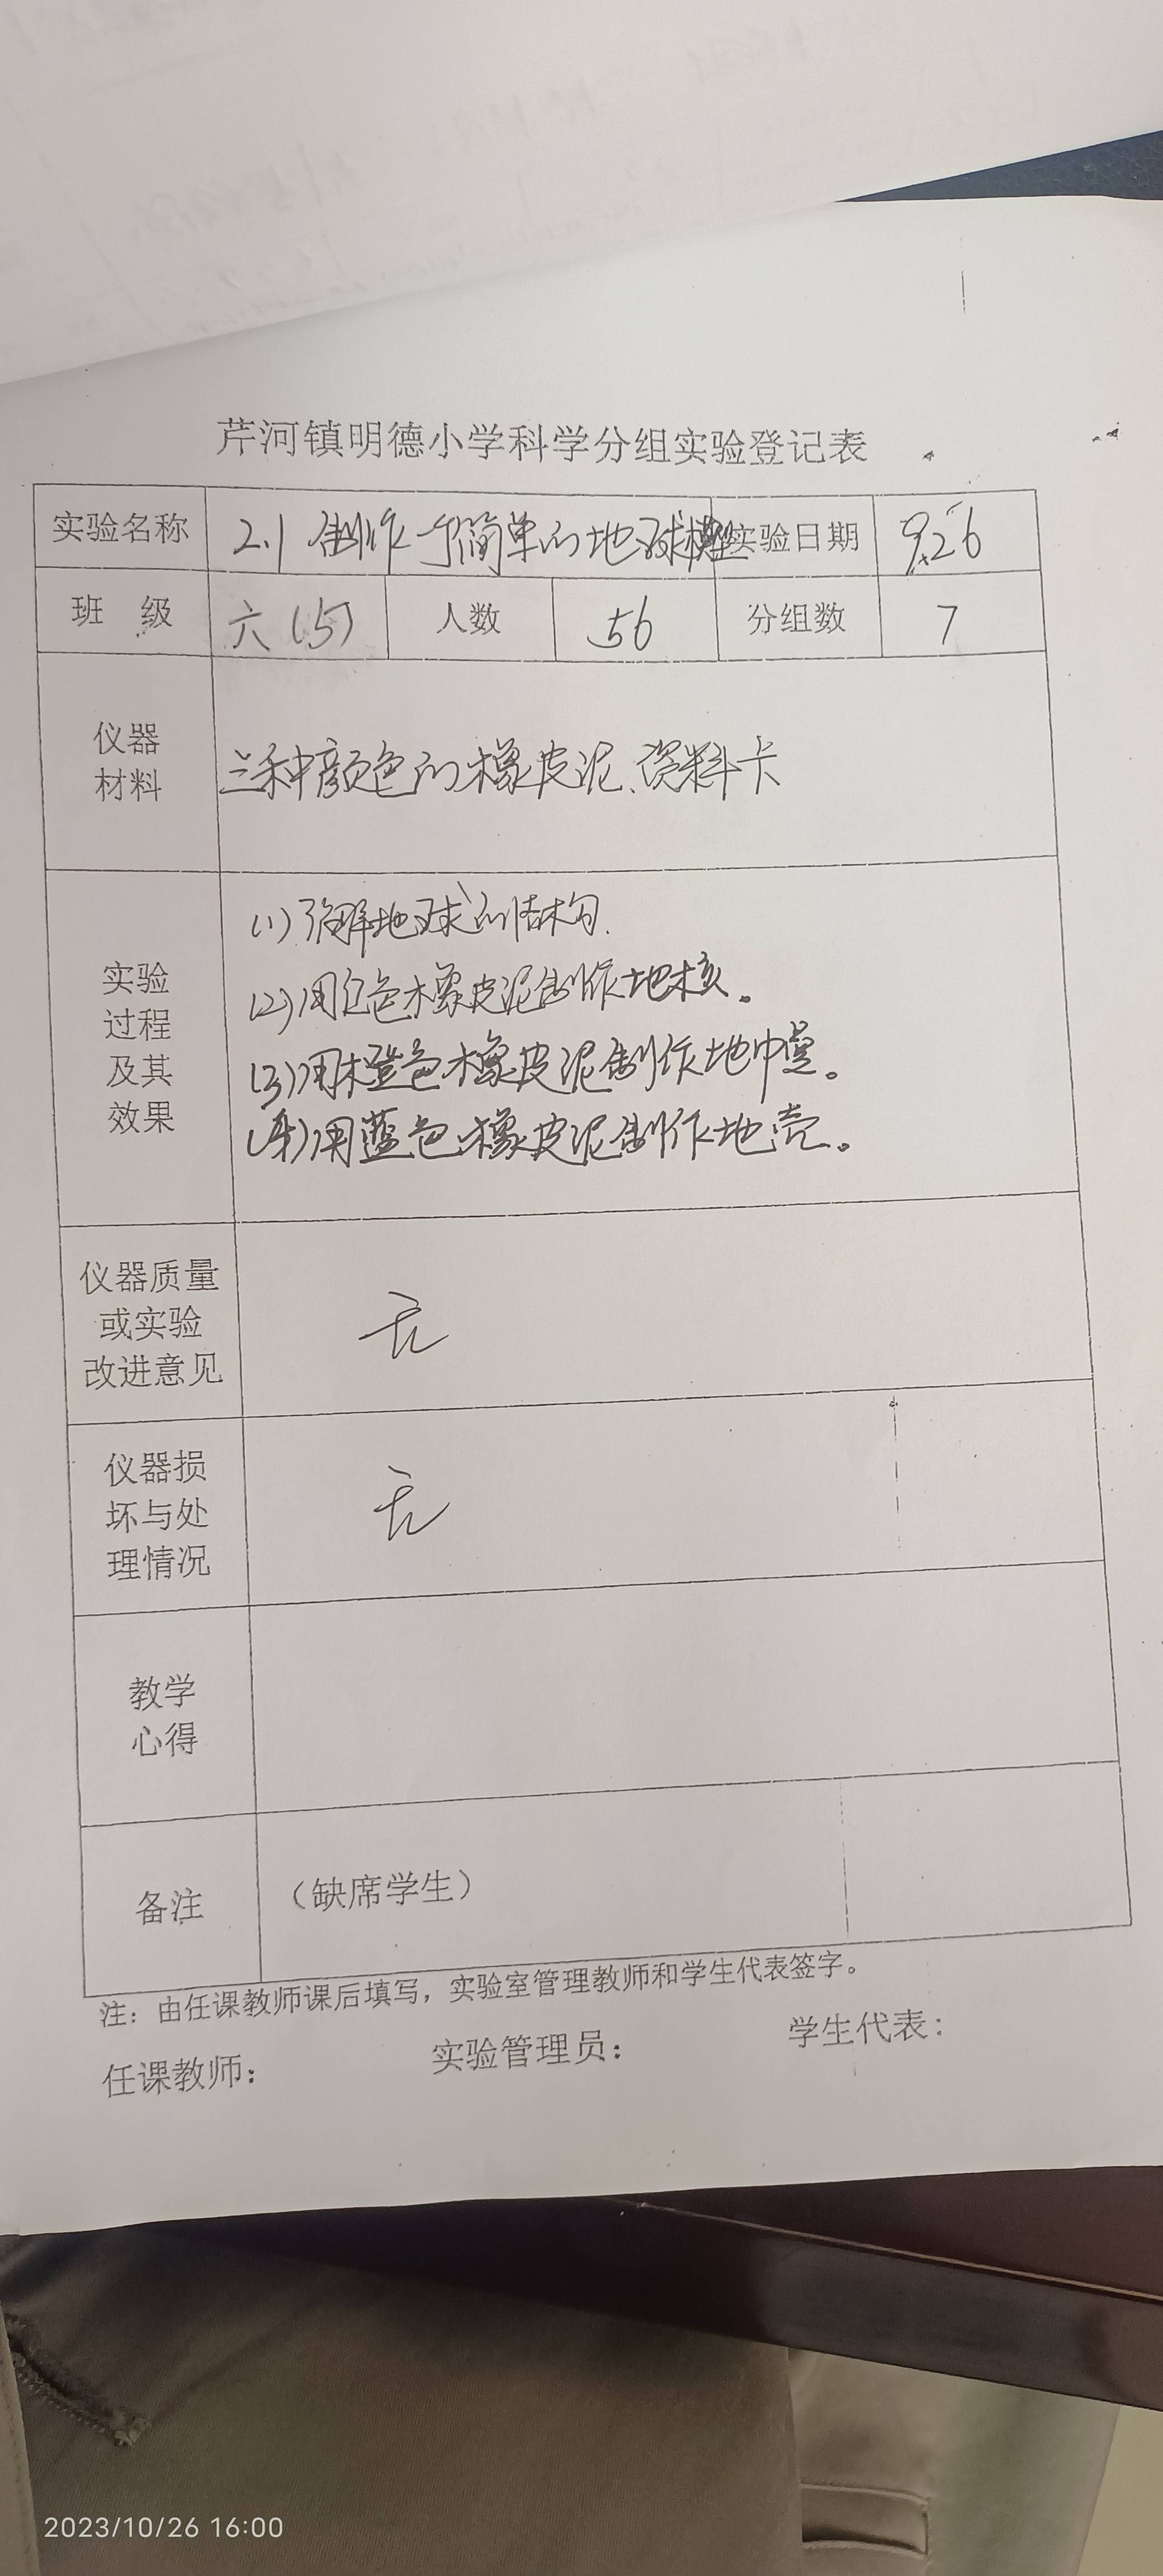 芹河镇明德小学科学分组实验登记表
实验名称 2.1 制作一个简单的地球模型 实验日期 9.26
班 级 六(5) 人数 56 分组数 7
仪器
材料
三种颜色的橡皮泥、资料卡
实验
过程
及其
效果
(1)了解地球的结构.
(2)用 色橡皮泥制作地核。
(3)用橙色橡皮泥制作地幔。
(4)用蓝色橡皮泥制作地壳。
仪器质量
或实验
改进意见
无
仪器损
坏与处
理情况
无
教学
心得
备注
（缺席学生）
注：由任课教师课后填写，实验室管理教师和学生代表签字。
任课教师： 实验管理员： 学生代表：
2023/10/26 16:00